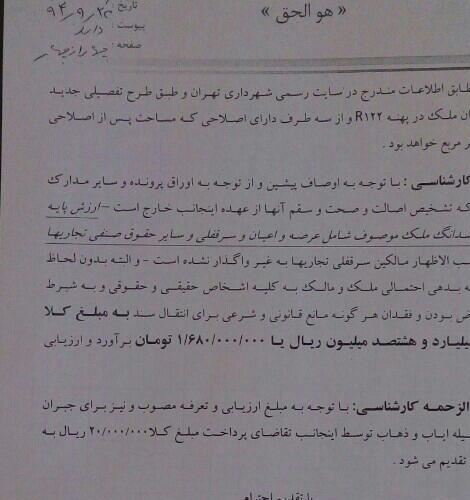 « هو الحق »
تاریخ: ۹۴/۹/۲۴
پیوست: دارد
صفحه:
طابق اطلاعات مندرج در سایت رسمی شهرداری تهران و طبق طرح تفصیلی جدید
ان ملک در پهنه R۱۲۲ و از سه طرف دارای اصلاحی که مساحت پس از اصلاحی
ر مربع خواهد بود .
کارشناسی : با توجه به اوصاف پیشین و از توجه به اوراق پرونده و سایر مدارک
که تشخیص اصالت و صحت و سقم آنها از عهده اینجانب خارج است – ارزش پایه
شدانگ ملک موصوف شامل عرصه و اعیان و سرقفلی و سایر حقوق صنفی تجاریها
ب الاظهار مالکین سرقفلی تجاریها به غیر واگذار نشده است - و البته بدون لحاظ
ه بدهی احتمالی ملک و مالک به کلیه اشخاص حقیقی و حقوقی و به شرط
ض بودن و فقدان هر گونه مانع قانونی و شرعی برای انتقال سند به مبلغ کلا
یلیارد و هشتصد میلیون ریال یا ۱/۶۸۰/۰۰۰/۰۰۰ تومان برآورد و ارزیابی
الزحمه کارشناسی: با توجه به مبلغ ارزیابی و تعرفه مصوب و نیز برای جبران
یله ایاب و ذهاب توسط اینجانب تقاضای پرداخت مبلغ کلا ۲۰/۰۰۰/۰۰۰ ریال به
تقدیم می شود .
با تقدیم احترام